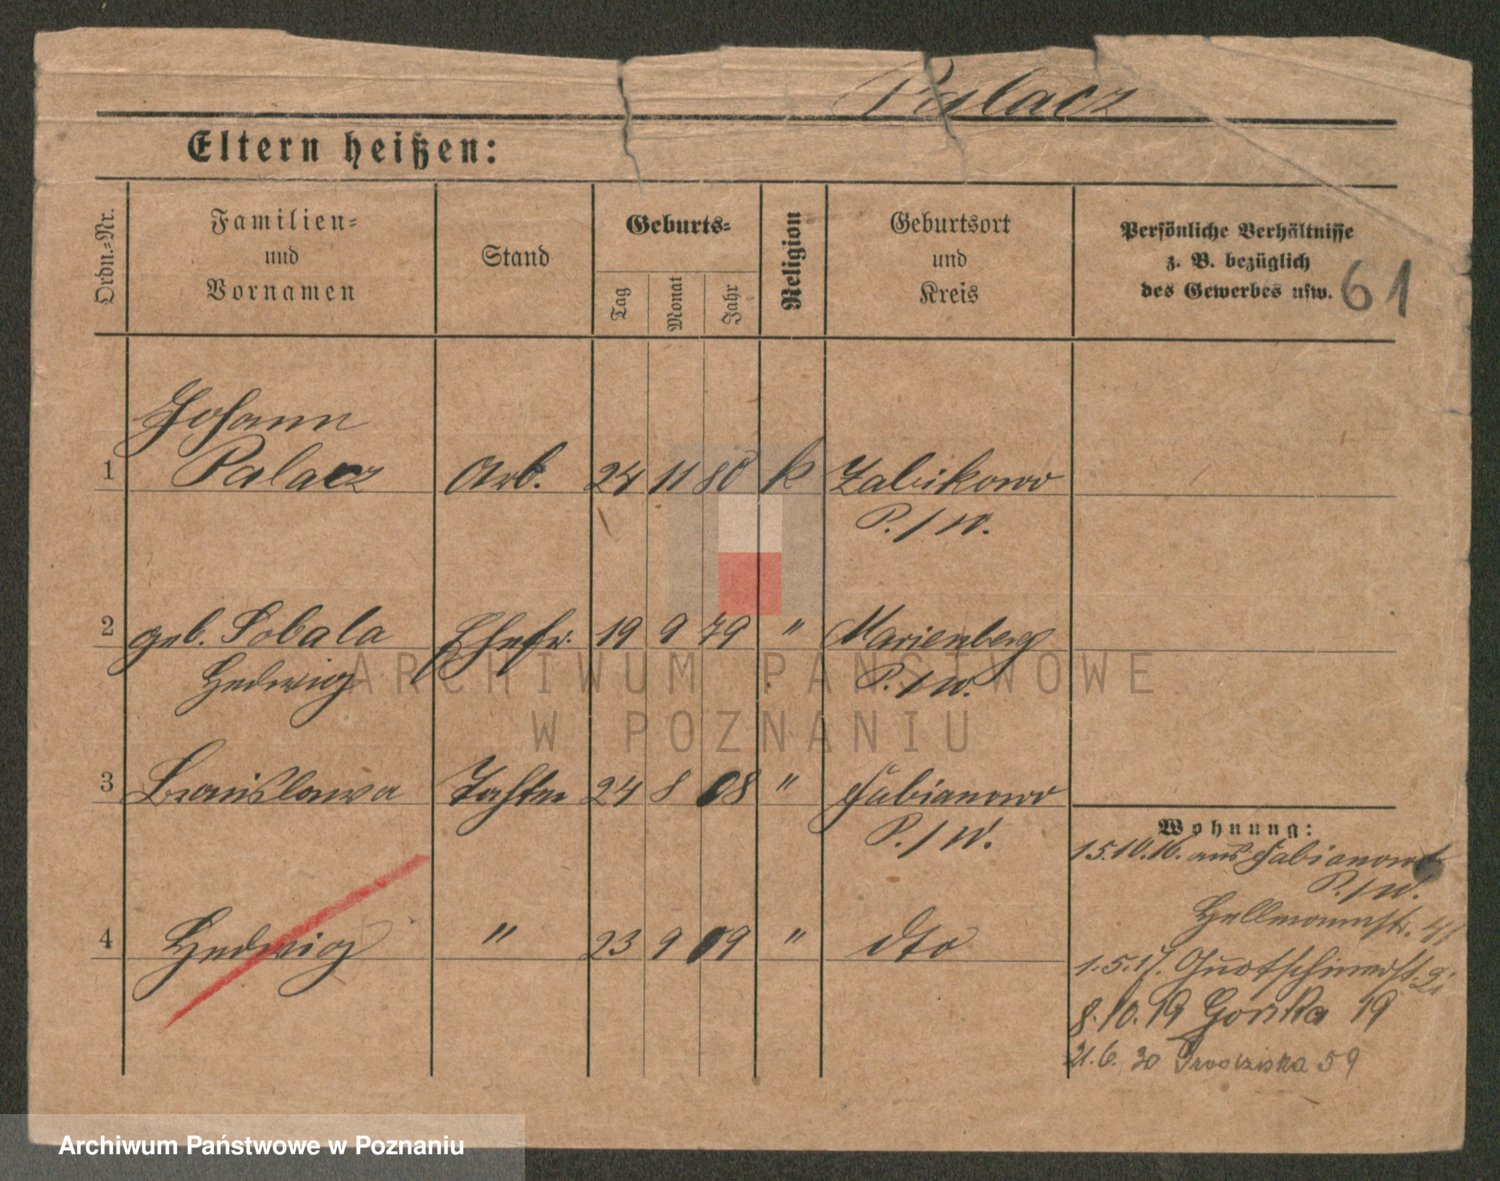 Palacz
Eltern heißen:
Ordn.-Nr.
Familien-
und
Vornamen
Stand
Geburts-
Tag
Monat
Jahr
Religion
Geburtsort
und
Kreis
Persönliche Verhältnisse
z. B. bezüglich
des Gewerbes usw.
61
Johann
1 Palacz Arb. 24 11 80 k Zabikowo
P. / W.
2 geb. Sobala Ehefr. 19 9 79 " Marienberg
Hedwig P. / W.
3 Bronislawa Tochter 24 8 08 " Fabianowo
P. / W.
4 Hedwig " 23 9 09 " dto
Wohnung:
15.10.16. aus Fabianowo
P. / W.
Hellmannstr.
1.5.17.
8.10.19 Gorska 19
21.6.30 Grodziska 59
ARCHIWUM PAŃSTWOWE
W POZNANIU
Archiwum Państwowe w Poznaniu